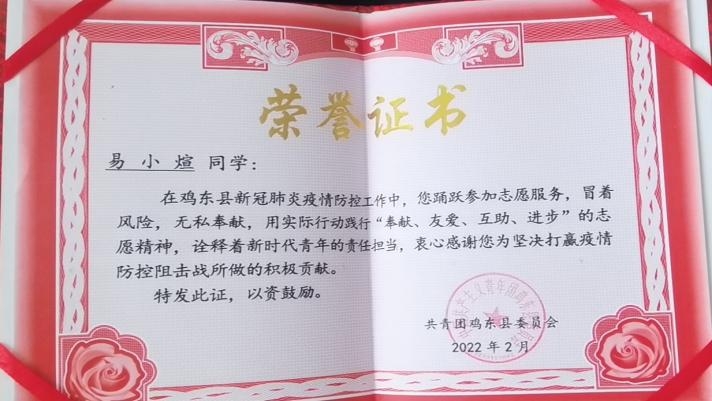 荣誉证书
易小煊同学：
在鸡东县新冠肺炎疫情防控工作中，您踊跃参加志愿服务，冒着
风险，无私奉献，用实际行动践行“奉献、友爱、互助、进步”的志
愿精神，诠释着新时代青年的责任担当，衷心感谢您为坚决打赢疫情
防控阻击战所做的积极贡献。
特发此证，以资鼓励。
共青团鸡东县委员会
2022年2月